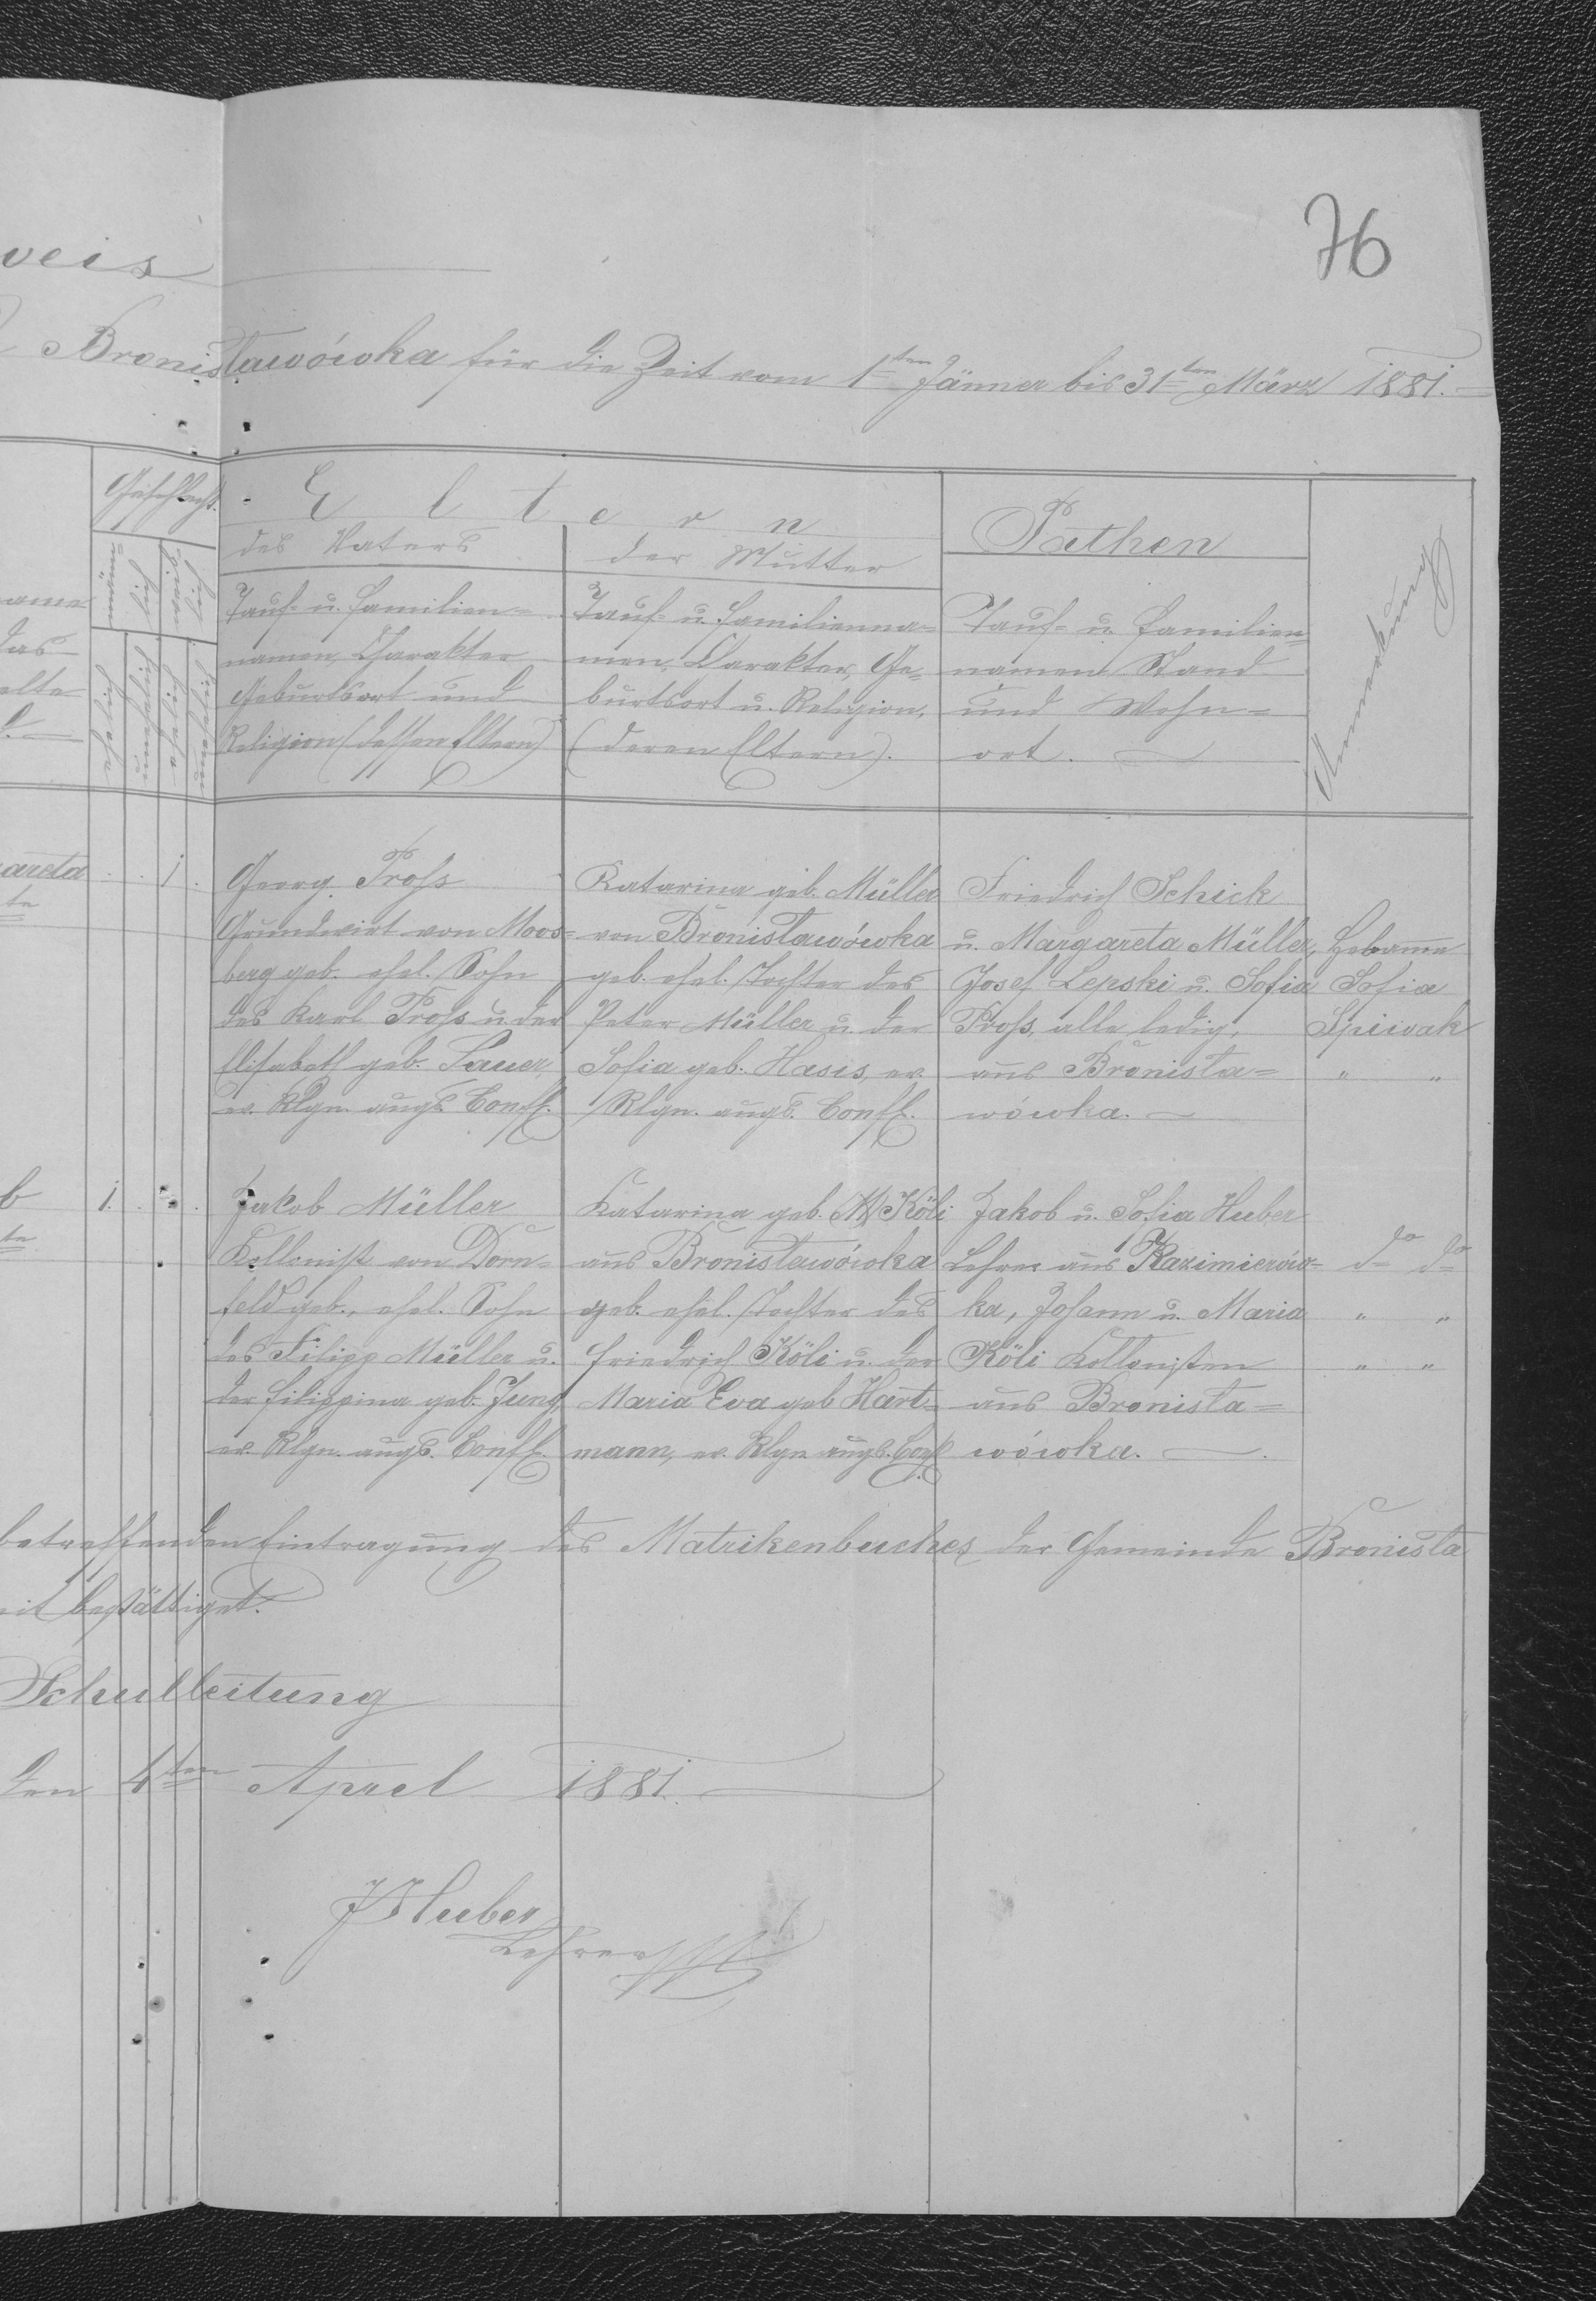 76
weis
Bronisławówka für die Zeit vom 1ten Jänner bis 31ten März 1881.
Geschlecht.
männ
lich
weib
lich
ehelich
unehelich
eheliche
uneheliche
Eltern
des Vaters
Tauf- u. Familien=
namen, Charakter
Geburtsort und
Religion (dessen Eltern)
der Mutter
Tauf- u. Familienna=
men, Charakter, Ge=
burtsort u. Religion,
(deren Eltern).
Pathen
Tauf- u. Familien
namen Stand
und Wohn=
ort.
Anmerkung
ame
das
elte
areta
te
1
Georg Proß
Grundwirt von Moos=
berg geb. ehel. Sohn
des Karl Proß u. der
Elisabeth geb. Sauer,
ev. Rlgn. augs. Conff.
Katarina geb. Müller
von Bronisławówka
geb. ehel. Tochter des
Peter Müller u. der
Sofia geb. Hasis, ev.
Rlgn. augs. Conff.
Friedrich Schick
u. Margareta Müller,
Josef Lepski u. Sofia
Proß, alle ledig,
aus Bronisła=
wówka.
Hebame
Sofia
Spiwak
" "
b
te
1.
Jakob Müller
Kollonist von Dorn=
feld geb., ehel. Sohn
des Filipp Müller u.
der Filippina geb. Jung
ev. Rlgn. augs. Conff.
Katarina geb. Köli
aus Bronisławówka
geb. ehel. Tochter des
Friedrich Köli u. der
Maria Eva geb Hart=
mann, ev. Rlgn. augs. Conff
Jakob u. Sofia Huber
Lehrer aus Kazimierów=
ka, Johann u. Maria
Köli Kollonisten
aus Bronisła=
wówka.
do do
" "
" "
betreffenden Eintragung des Matrikenbuches der Gemeinde Bronisła
mit bestättiget.
Schulleitung
den 4ten April 1881.
J Huber
Lehrer